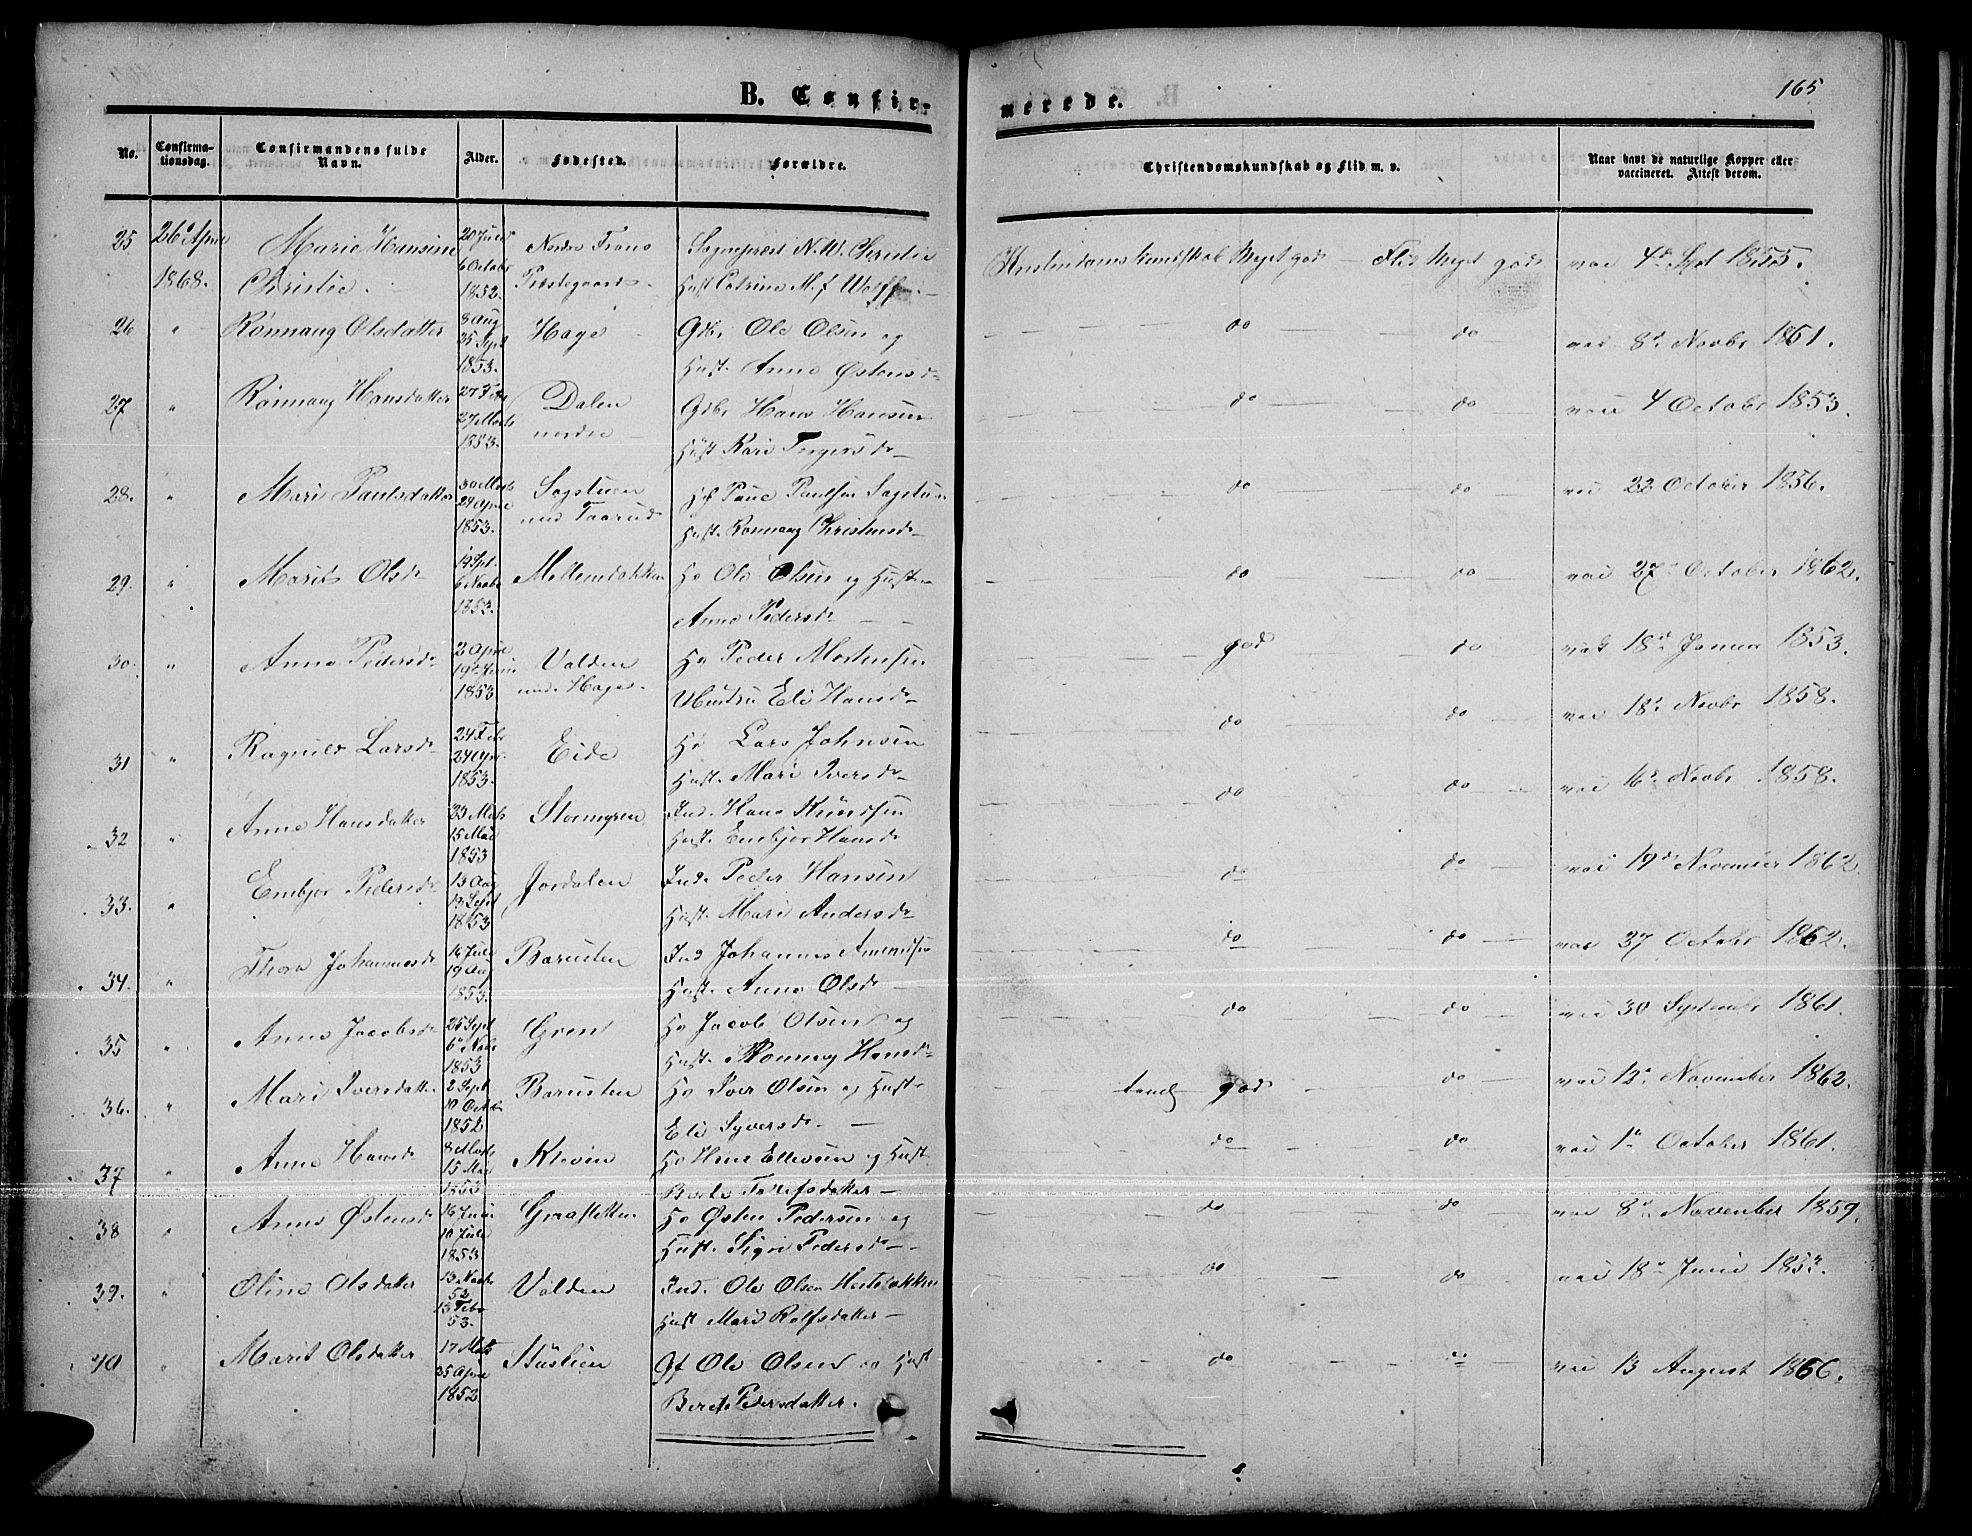 165
B. Confirmerede.
No. Confirmationsdag. Confirmandens fulde Navn. Alder. Fødested. Forældre. Christendomskundskab og Flid m. v. Naar havt de naturlige Kopper eller vaccineret. Attest derom.
25 26 April 1868. Marie Hansine Christie. 20 Juli 6 Octobr 1852. Nordre Frons Præstegaard. Sognepræst N. W. Christie Hust Catrine M. f Wolff Kristendomskundskab Meget god Flid Meget god vac 4 Sept 1855.
26 " Rønnaug Olsdatter 8 Aug 25 Sept 1853. Hage Gdbr Ole Olsen og Hust. Anne Østensd do do vac 8 Novbr 1861.
27 " Rønnaug Hansdatter 27 Febr 27 Marts 1853. Dalen nordre Gdbr Hans Hansen Hust Kari Torgersd do do vac 4 October 1853.
28. " Mari Paulsdatter 30 Marts 24 April 1853. Sagstuen und Taarud Paul Paulsen Sagstuen Hust. Rønnaug Christensd do do vac 22 October 1856.
29. " Marit Olsd 14 Sept. 6 Novbr 1853. Mellemdokken Ho Ole Olsen og Hust Anne Pedersd do do vac 27 October 1862.
30. " Anne Pedersd 2 April 19 Juni 1853 Volden und. Hage. Ho Peder Mortensen Hustru Eli Hansd god do vac 18 Januar 1853.
31 " Ragnild Larsd 24 Febr 24 Apr. 1853. Eide Ho Lars Johnsen Hust. Mari Iversd do do vac 18 Novbr 1858.
32 " Anne Hansdatter 23 Marts 15 Mai 1853 Stormyren Ind. Hans Knudsen Hust. Embjør Hansd do do vac 16 Novbr 1858.
33. " Embjør Pedersd 13 Aug 19 Sept 1853 Jordalen Ind. Peder Hansen Hust. Mari Andersd do do vac 19 November 1862
34. " Thora Johannesd 14 Juli 19 Aug 1853. Barusten Ind Johannes Amundsen Hust. Anne Olsd do do vac 27 Octobr 1862.
35 " Anne Jacobsd 25 Sept 6 Novbr 1853 Gren Ho Jacob Olsen og Hust. Rønnaug Hansd do do vac 30 September 1861.
36. " Mari Iversdatter 2 Sept. 10 Octbr 1852 Barusten Ho Iver Olsen og Hust Eli Syversd temlig god do vac 12 November 1862.
37 " Anne Hansd 8 Marts 15 Mai 1853 Kleven Ho Hans Ellevsen og Hust. Berte Tollefsdatter do do vac 1 October 1861.
38 " Anne Østensd 14 Juni 10 Juli 1853 Graslette Ho Østen Pedersen og Hust. Sigri Pedersd do do vac 8 November 1859.
39. " Oline Olsdatter 13 Novbr 52 13 Febr 53. Volden Ind. Ole Olsen Hust Mari Rolfsdatter do do vac 18 Juni
40 " Marit Olsdatter 17 Marts 25 April 1852 Stuslien Gf Ole Olsen og Hust Berete Pedersdatter. do do vac 13 August 1866.